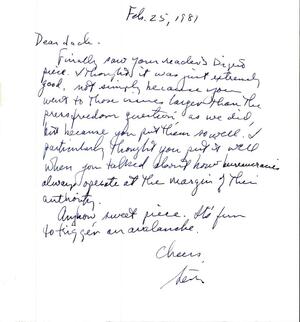 Feb. 25, 1981
Dear Jack.
Finally saw your reader's Digest
piece. I thought it was just extremely
good, not simply because you
went to those issues larger than the
press freedom question as we did,
but because you put them so well. I
particularly thought you put it well
when you talked about how bureaucracies
always operate at the margin of their
authority.
Anyhow sweet piece. It's fun
to trigger an avalanche.
Cheers,